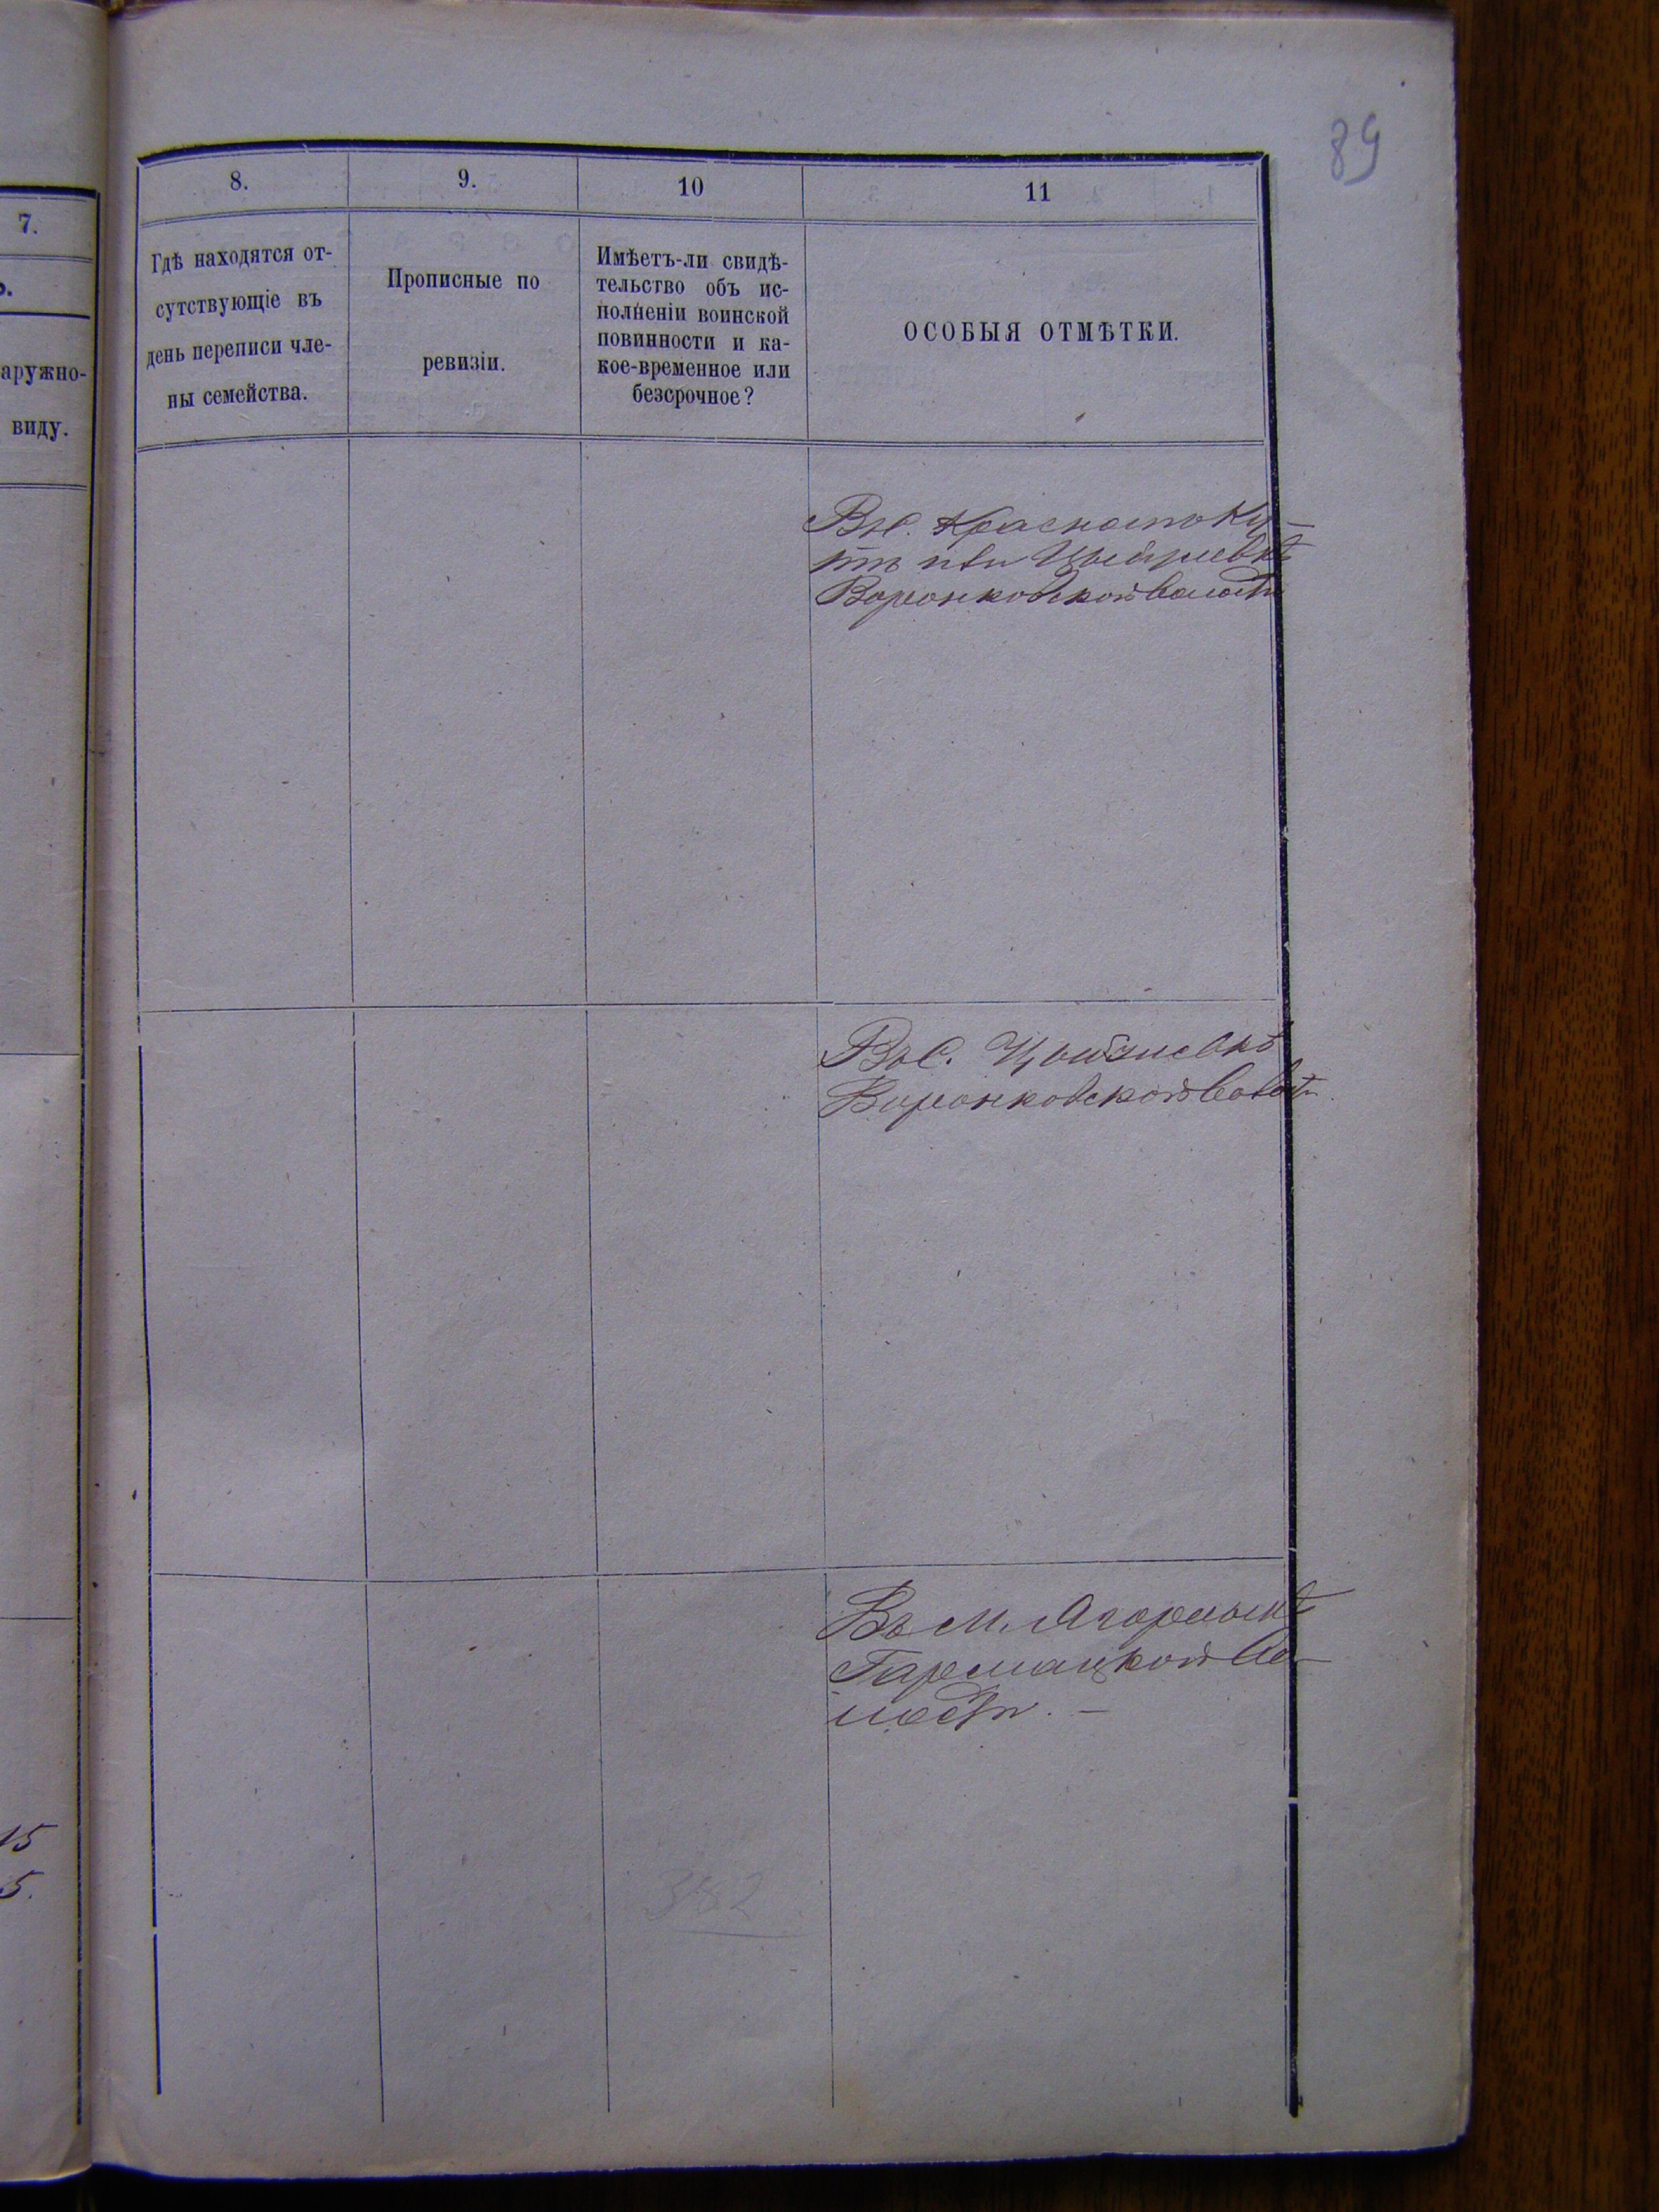 89
7.
ь.
аружно-
виду.
15
5.
8.
9.
10
11
Гдѣ находятся от-
сутствующіе въ
день переписи чле-
ны семейства.
Прописные по
ревизіи.
Имѣетъ-ли свидѣ-
тельство объ ис-
полненіи воинской
повинности и ка-
кое-временное или
безсрочное?
ОСОБЫЯ ОТМѢТКИ.
Въ с. Красномъ Ку-
тѣ или
Воронковской волости
Въ с.
Воронковской волости.
Въ м. Ягорлыкѣ
Гармацкой во-
лости. —
352